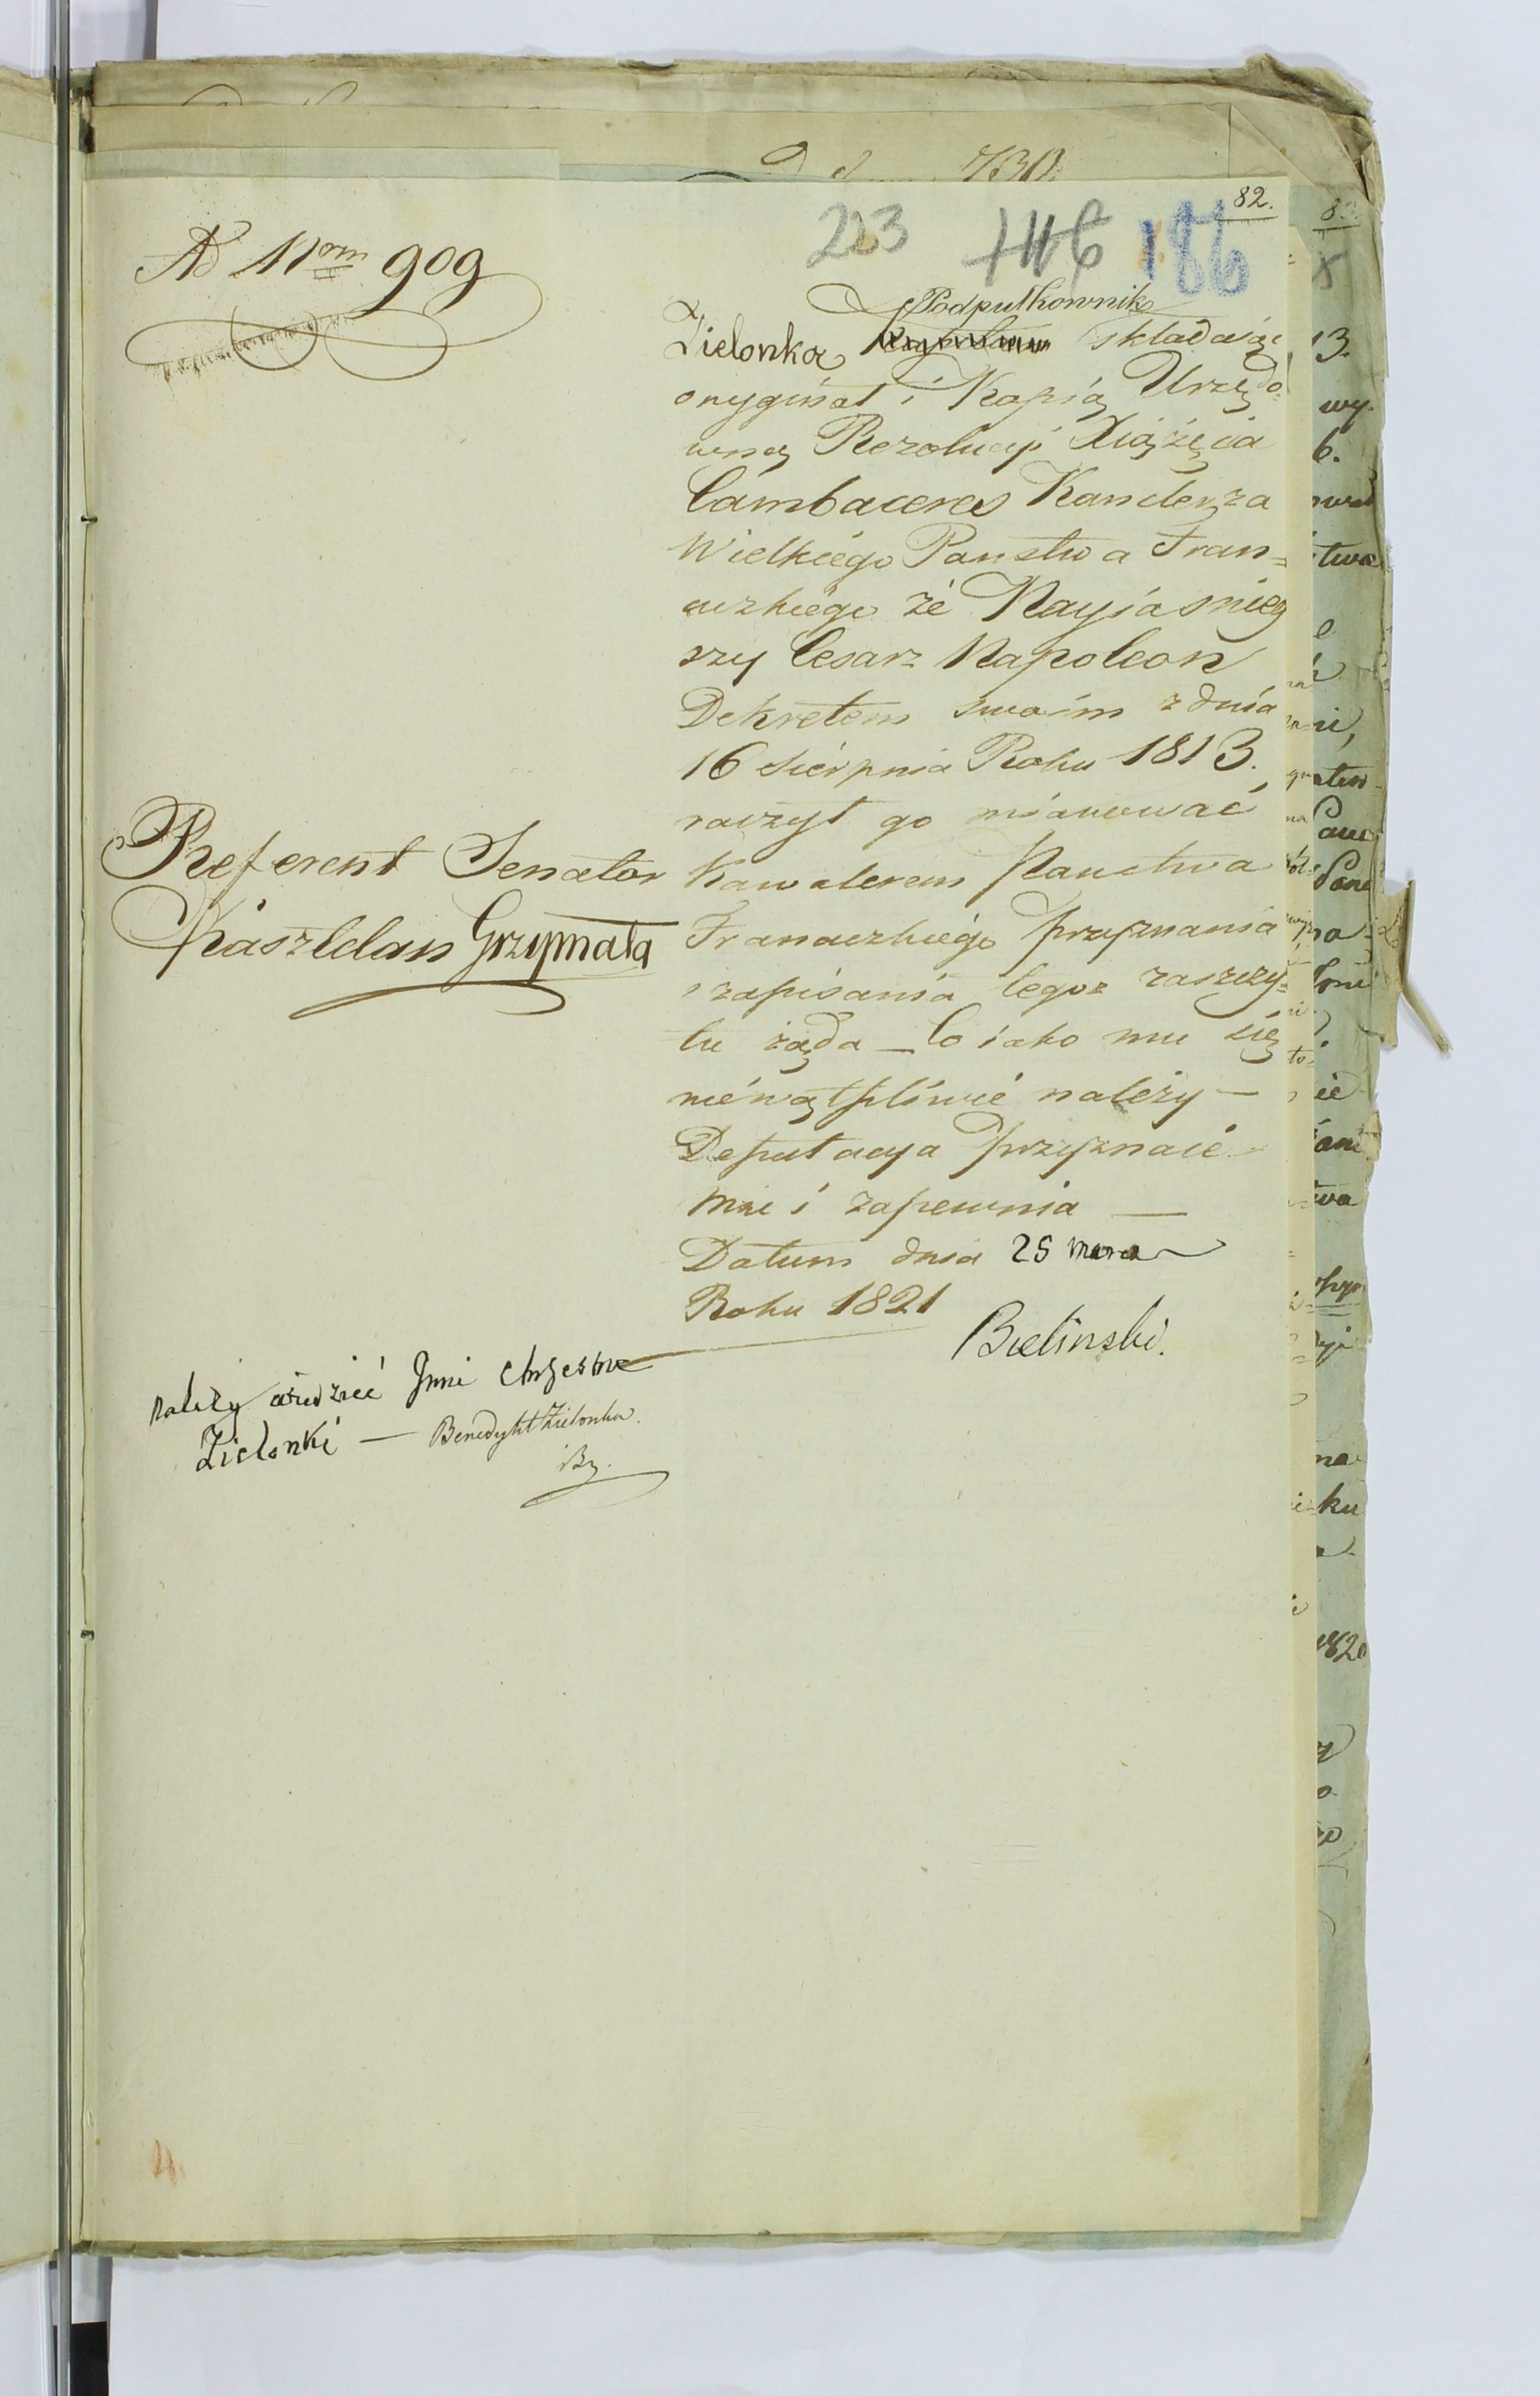 82.
223 186
Ad Nrom 909
Podpułkownik
Zielonka składaiąc
oryginał i Kopią Urzędo=
wną Rezolucyi Xiążęcia
Cambaceres Kanclerza
Wielkiego Panstwa Fran=
cuzkiego że Nayiasniey
szy Cesarz Napoleon
Dekretem swoim z dnia
16 Sierpnia Roku 1813.
raczył go mianować
Kawalerem Panstwa
Francuzkiego przyznania
i zapisania tegoz zaszczy=
tu żąda – Co iako mu się
niewątpliwie należy –
Deputacya przyznaie
Mu i zapewnia –
Datum dnia 25 marca
Roku 1821
Bielinski.
Referent Senator
Kasztelan Grzymała
należy wiedzieć Jmie chrzestne
Zielonki – Benedykt Zielonka.